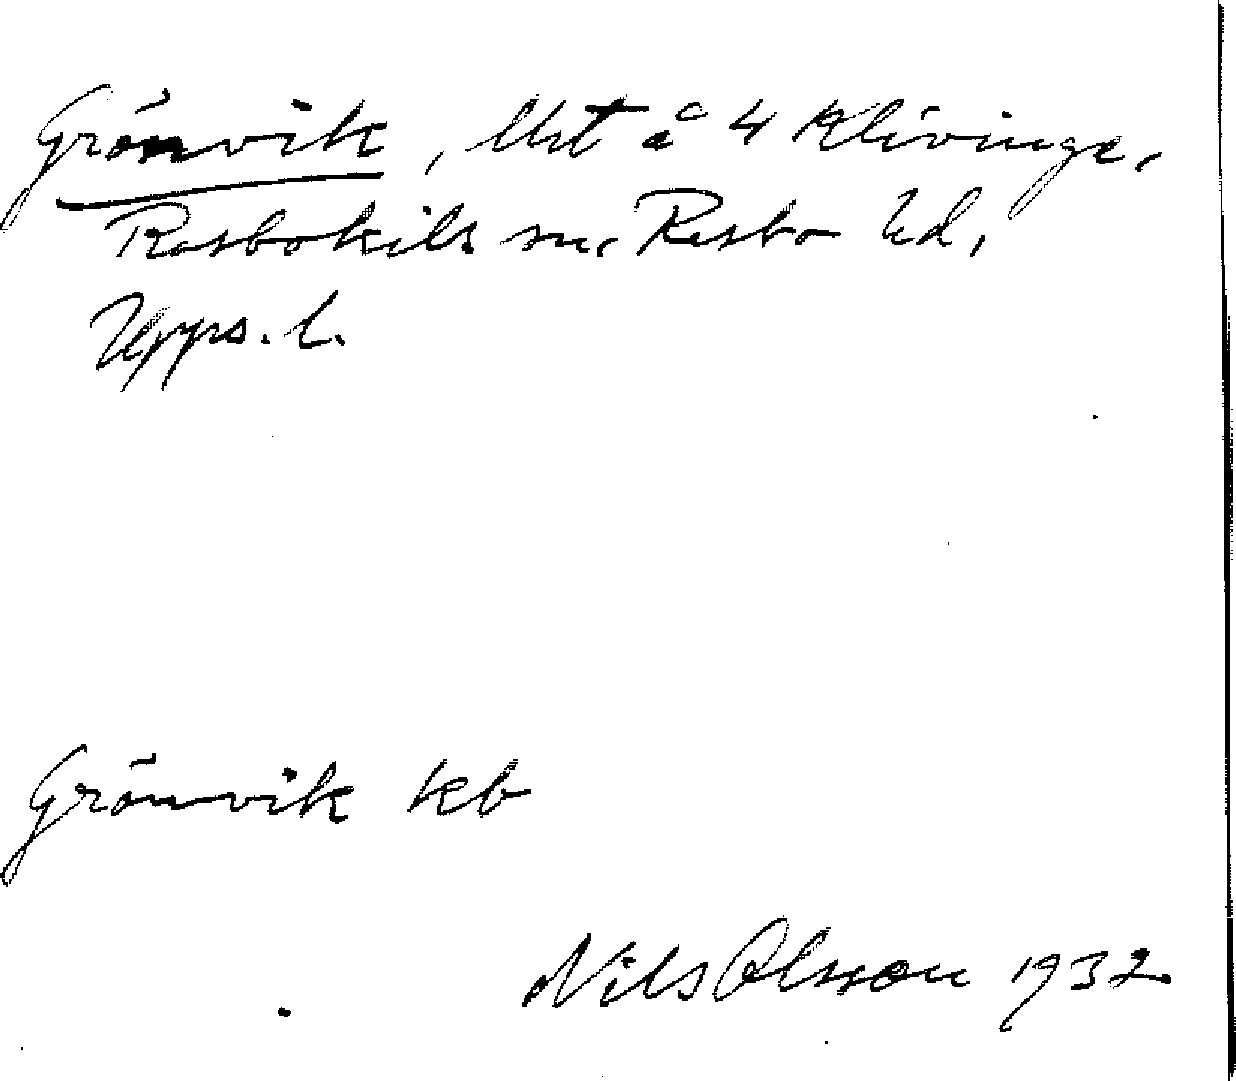 Grönvik, Ust å 4 Klivinge,
Rasbokils sn. Rasbo hd,
Upps. l.
Grönvik kb
Nils Olsson 1932